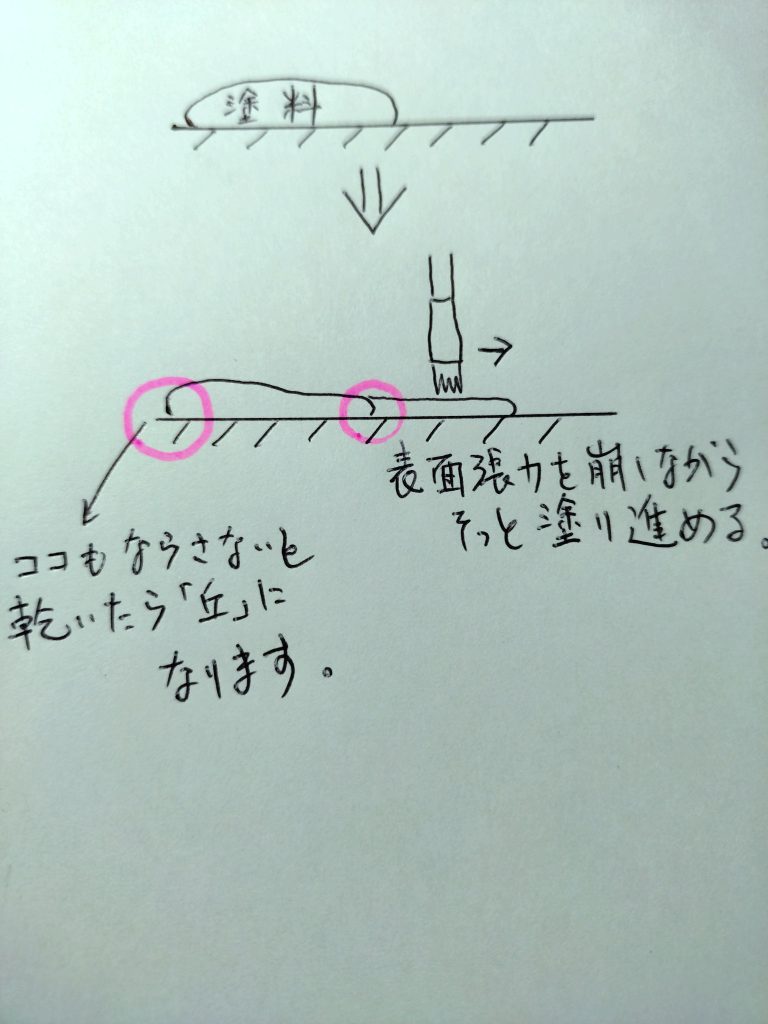 塗料
表面張力を崩しながら
そっと塗り進める。
ココもならさないと
乾いたら「丘」に
なります。